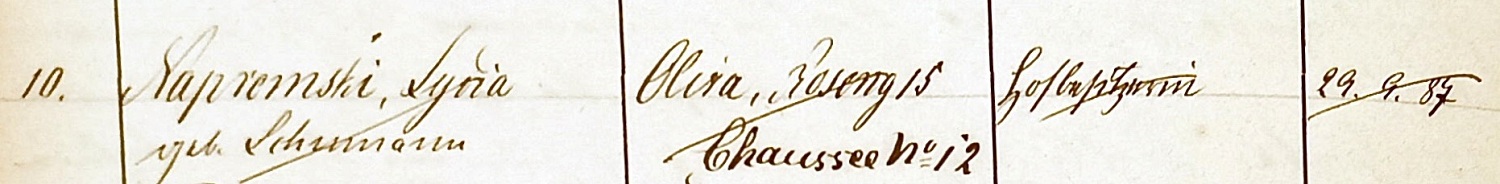 10. Napromski, Lycia Oliva, Roseng 15 Hofbesitzerin 29. 9. 87
geb. Schumann Chaussee No 12